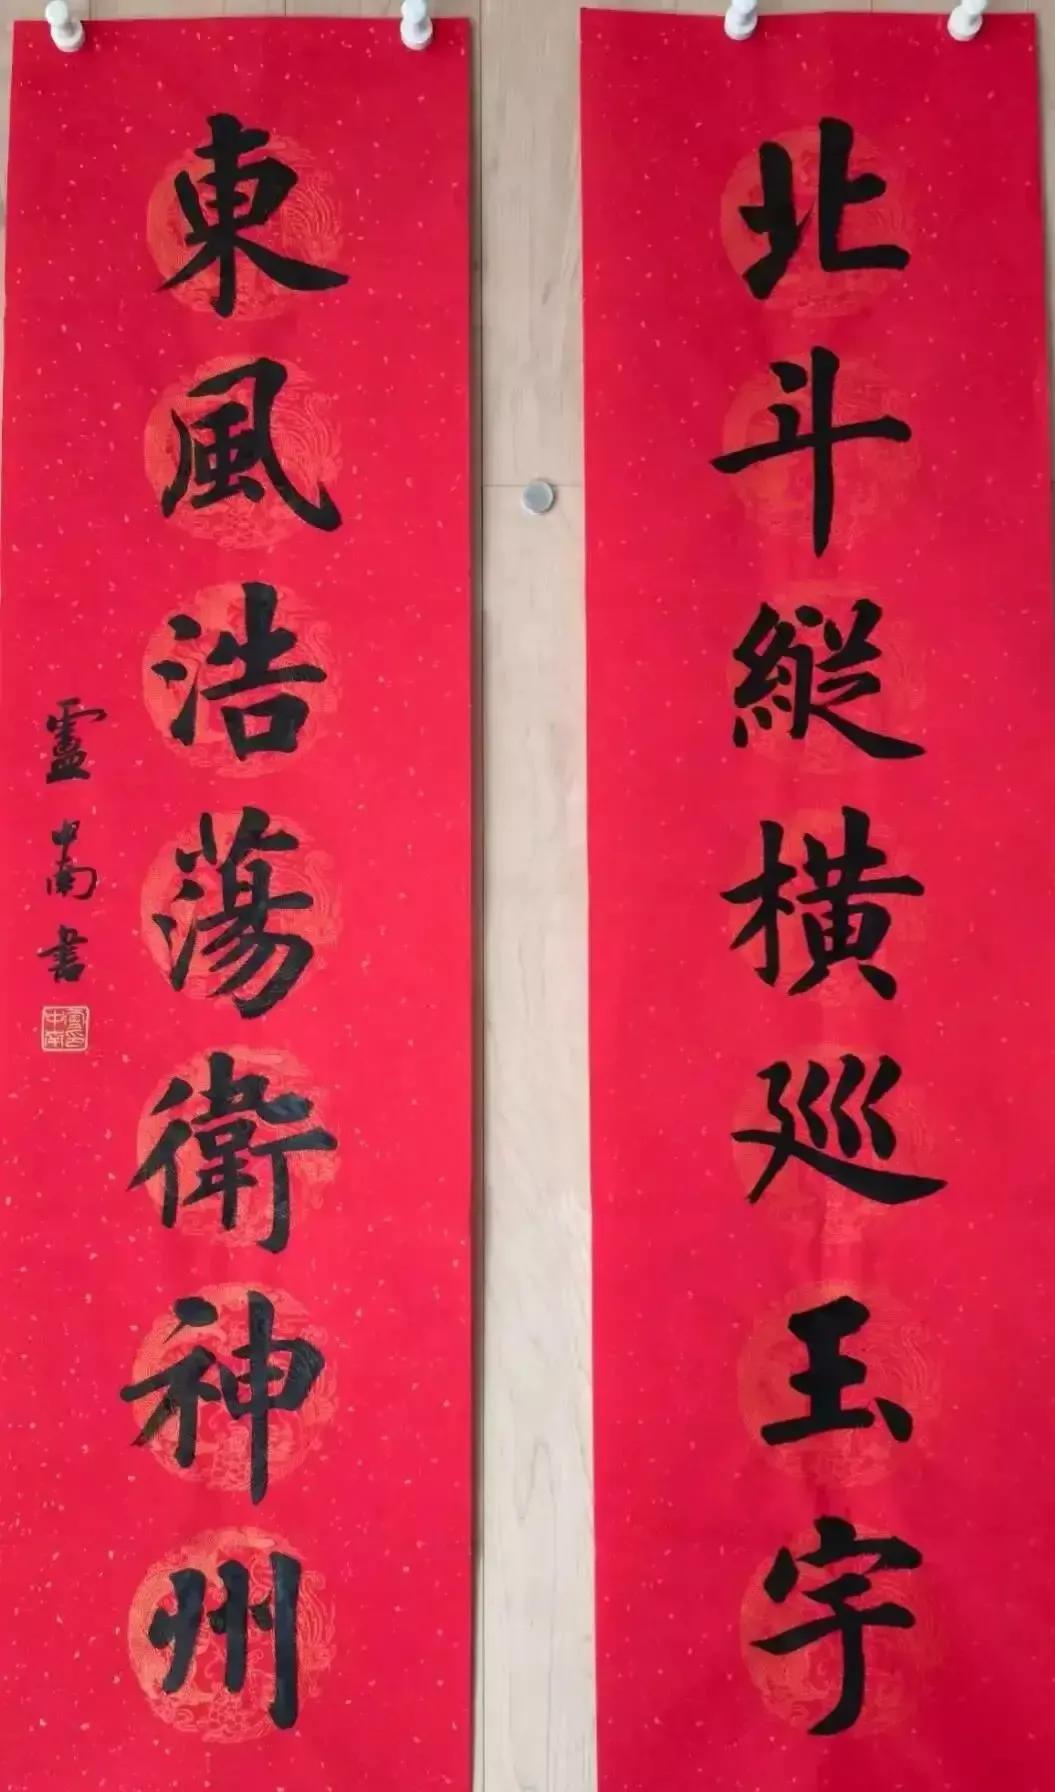 北斗縱横巡玉宇
東風浩蕩衛神州
盧中南書